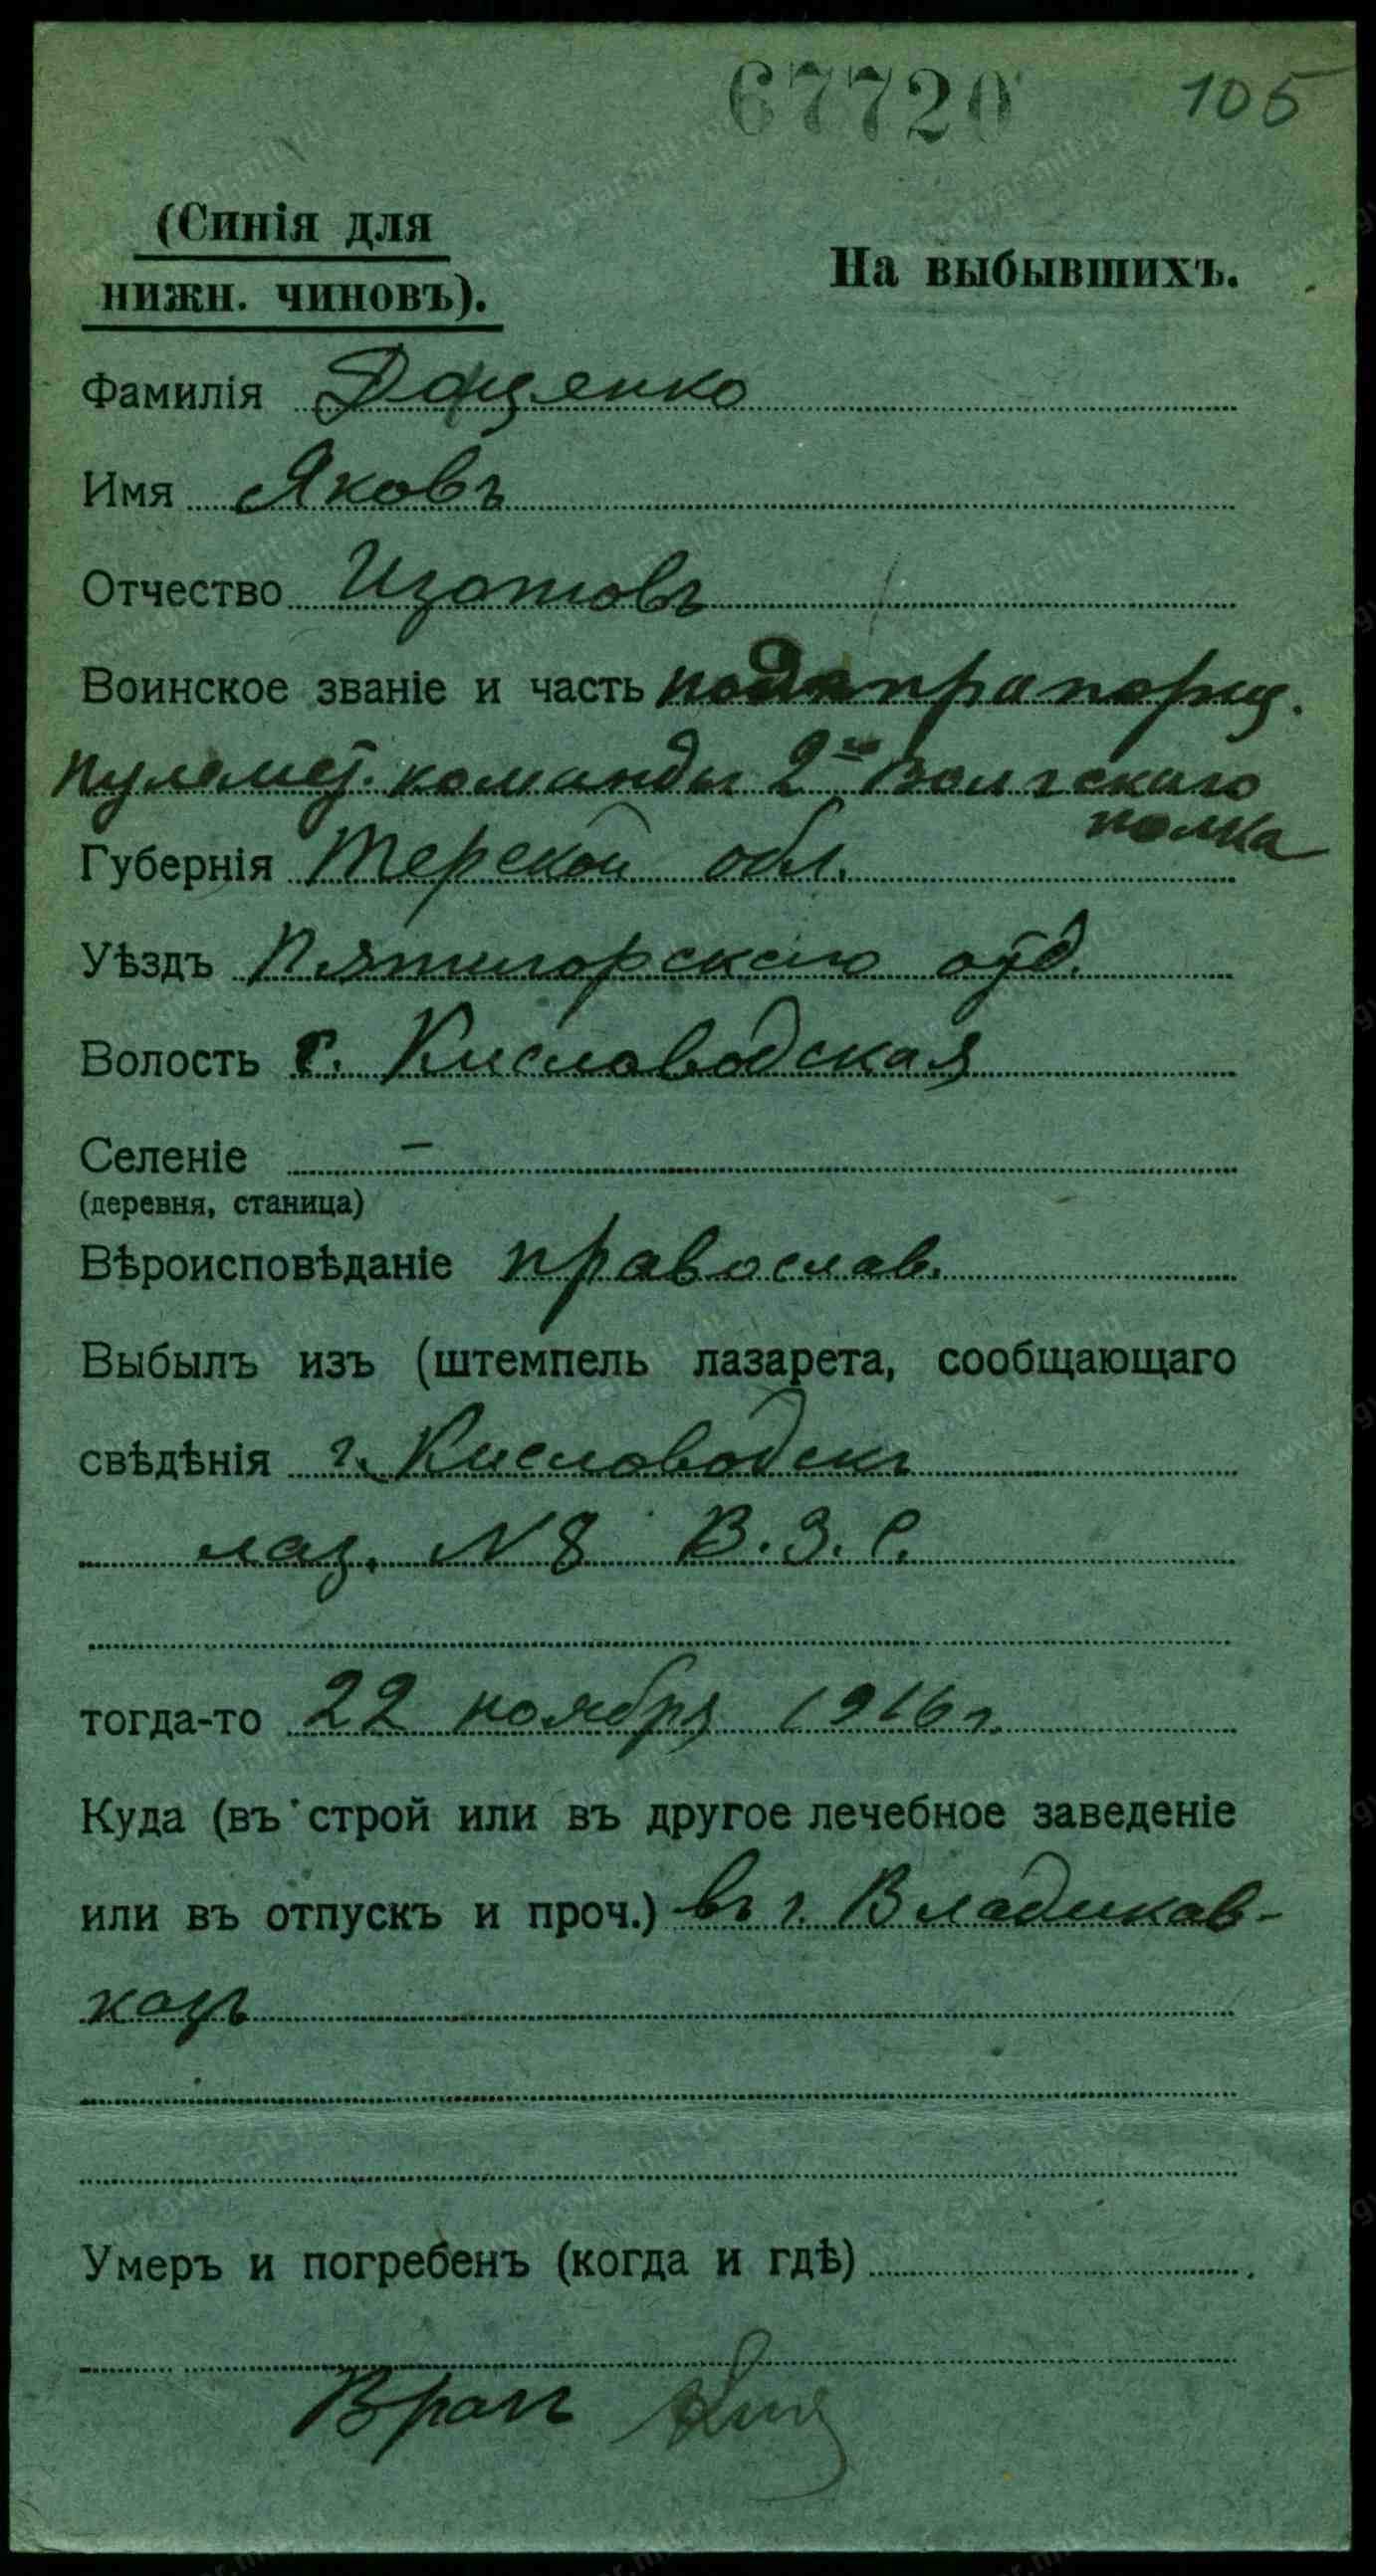 67720 105
(Синія для
нижн. чиновъ).
На выбывшихъ.
Фамилія Доценко
Имя Яковъ
Отчество Изотовъ
Воинское званіе и часть подпрапорщ.
пулемет. команды 2го Волгскаго
полка
Губернія Терской обл.
Уѣздъ Пятигорскаго отд.
Волость с. Кисловодская
Селеніе —
(деревня, станица)
Вѣроисповѣданіе православ.
Выбылъ изъ (штемпель лазарета, сообщающаго
свѣдѣнія г. Кисловодскъ
лаз. N 8 В. З. С.
тогда-то 22 ноября 1916 г.
Куда (въ строй или въ другое лечебное заведеніе
или въ отпускъ и проч.) въ г. Владикав-
казъ
Умеръ и погребенъ (когда и гдѣ)
Врачъ